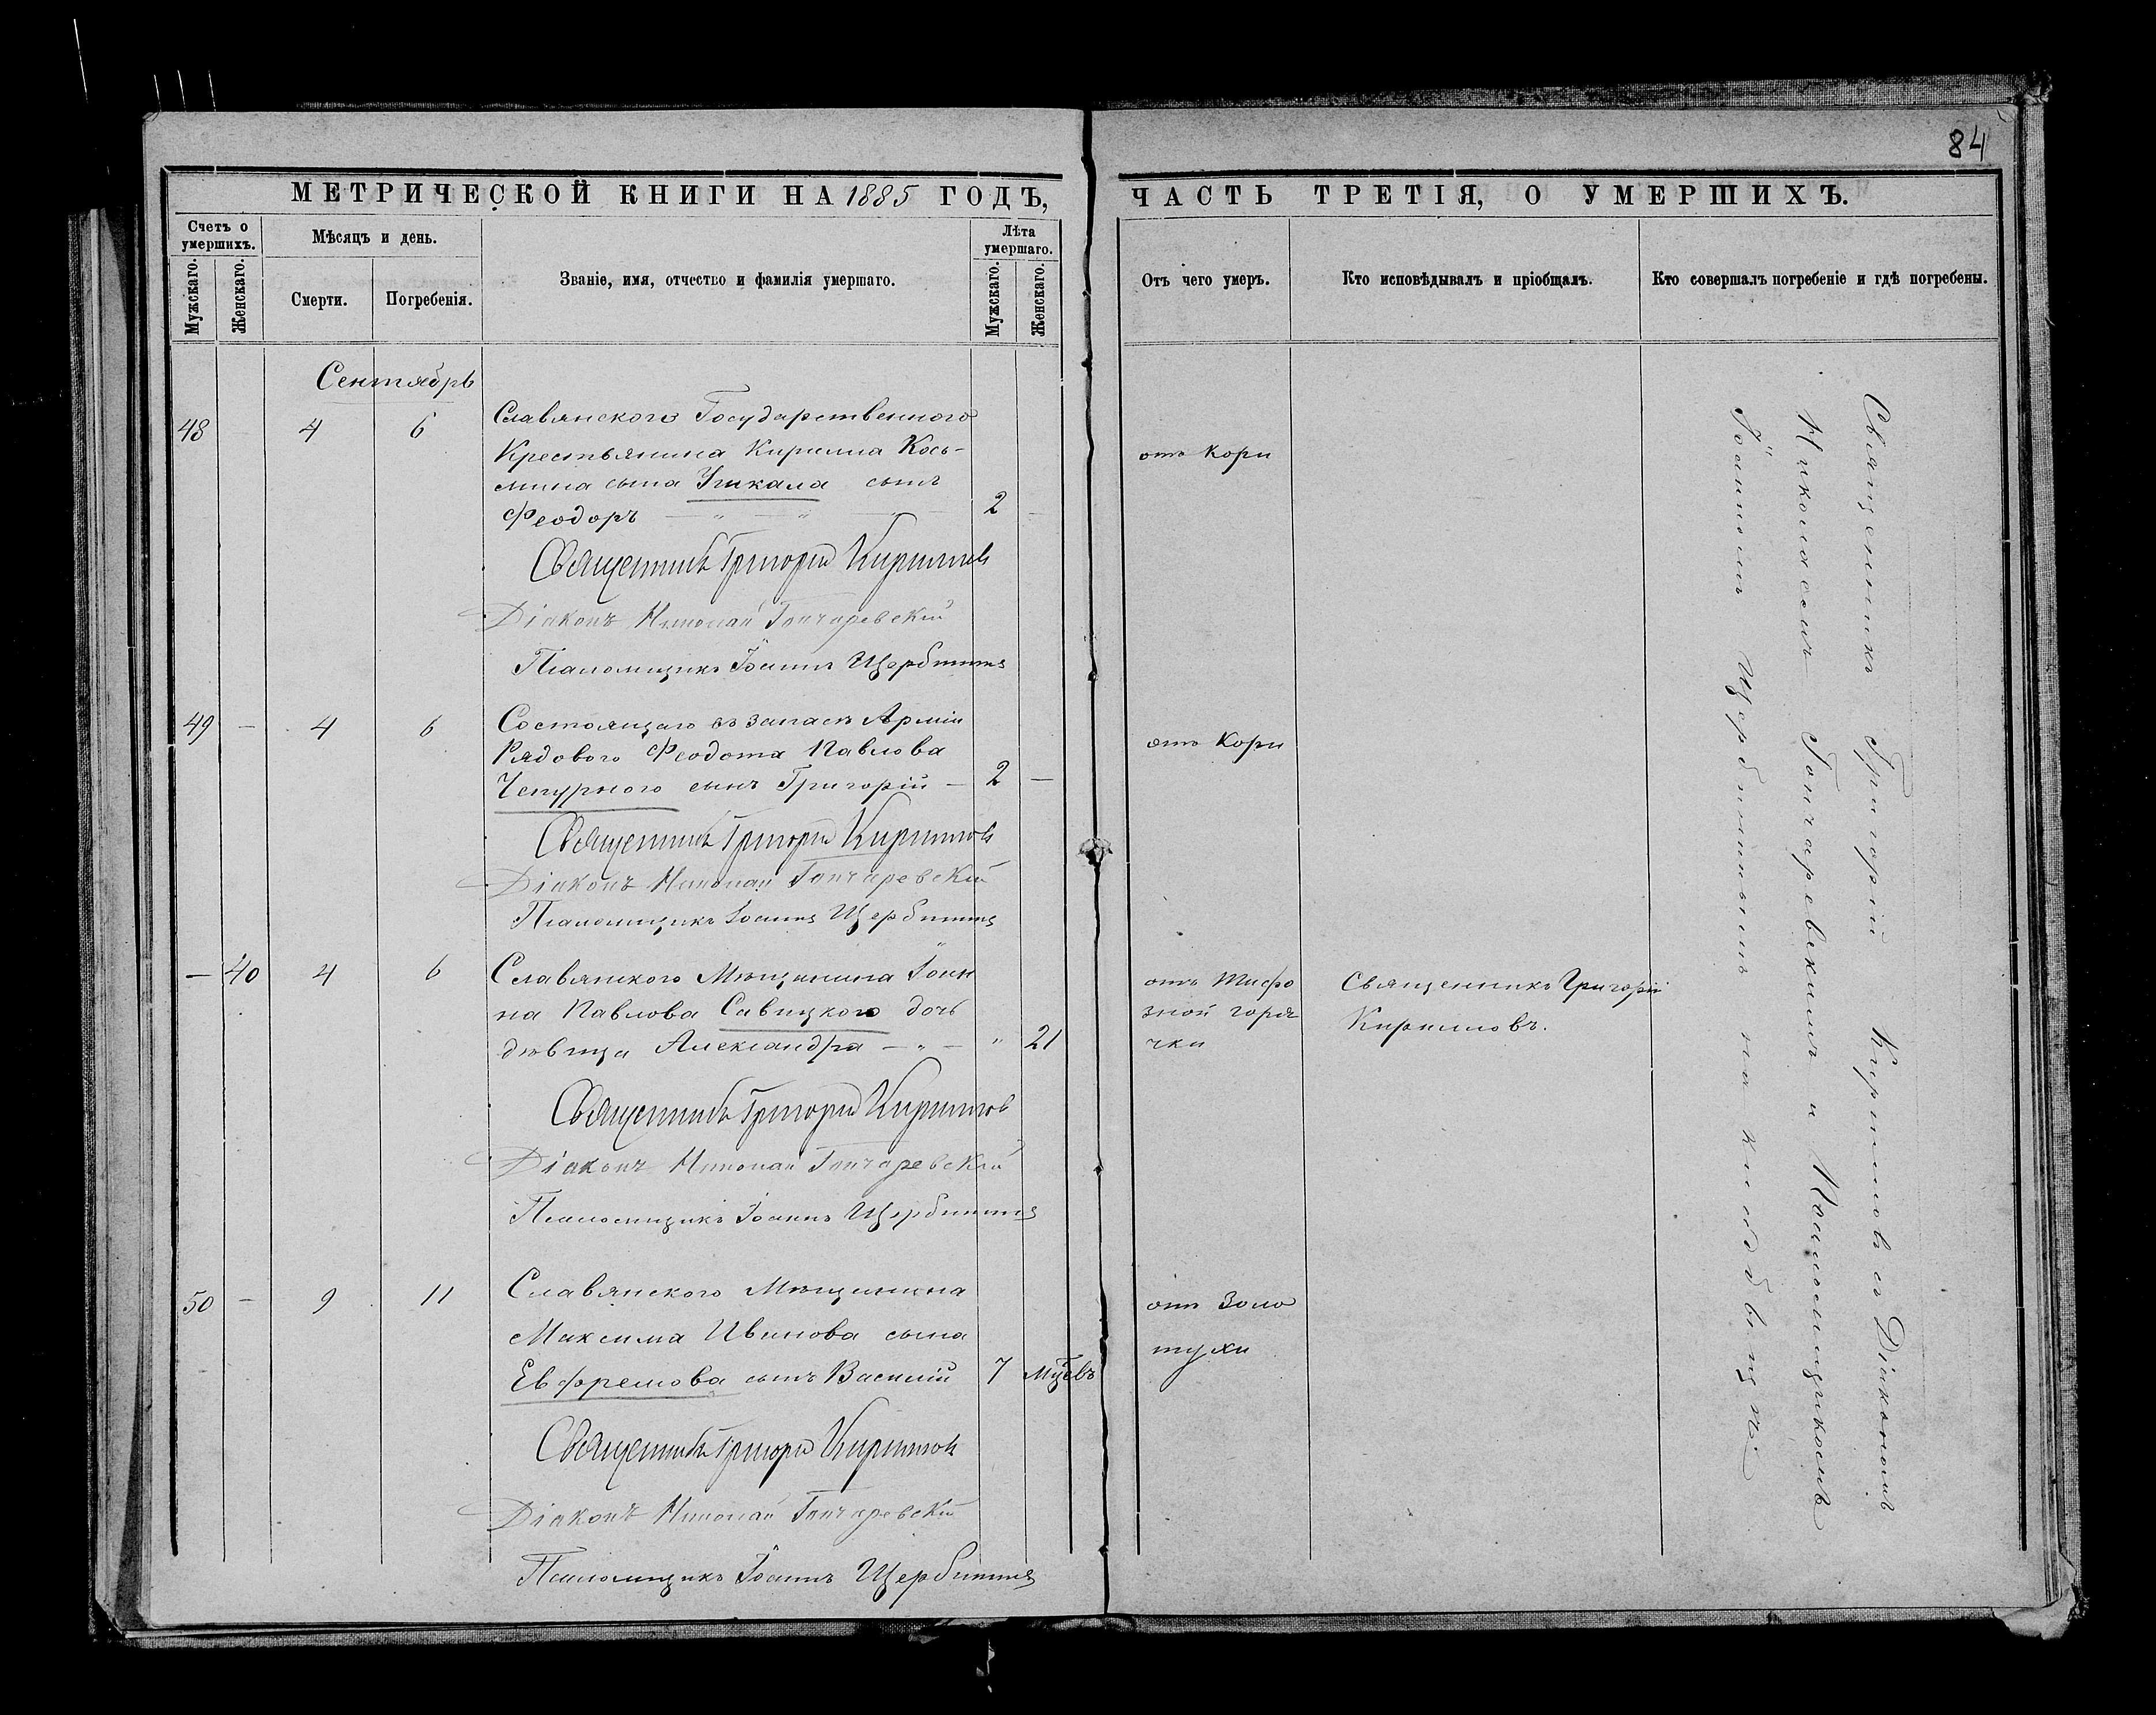 84
МЕТРИЧЕСКОЙ КНИГИ НА 1885 ГОДЪ,
ЧАСТЬ ТРЕТІЯ, О УМЕРШИХЪ.
Счетъ о умершихъ.
Мужскаго.
Женскаго.
Мѣсяцъ и день.
Смерти.
Погребенія.
Званіе, имя, отчество и фамилія умершаго.
Лѣта умершаго.
Мужскаго.
Женскаго.
Отъ чего умеръ.
Кто исповѣдывалъ и пріобщалъ.
Кто совершалъ погребеніе и гдѣ погребены.
Сентябрь
48 4 6 Славянского Государственного
Крестьянина Кирилла Кось-
мина сына сынъ
Феодоръ 2
отъ Кори
Священникъ Григорій Кирилловъ
Діаконъ Николай Гончаревскій
Псаломщикъ Іоаннъ Щербининъ
49 — 4 6 Состоящаго въ запасѣ Арміи
Рядового Феодота Павлова
Чепурного сынъ Григорій — 2 —
отъ Кори
Священникъ Григорій Кирилловъ
Діаконъ Николай Гончаревскій
Псаломщикъ Іоаннъ Щербининъ
— 40 4 6 Славянского Мѣщанина Іоан
на Павлова Савицкого дочь
дѣвица Александра — „ — „ 21
отъ Тифо
зной горя
чки
Священникъ Григорій
Кирилловъ.
Священникъ Григорій Кирилловъ
Діаконъ Николай Гончаревскій
Псаломщикъ Іоаннъ Щербининъ
50 — 9 11 Славянского Мѣщанина
Максима Иванова сына
Евфремова сынъ Василій 7 мцевъ
отъ Золо
тухи
Священникъ Григорій Кирилловъ
Діаконъ Николай Гончаревскій
Псаломщикъ Іоаннъ Щербининъ
Священникъ Григорій Кирилловъ съ Діакономъ
Николаемъ Гончаревскимъ и Псаломщикомъ
Іоанномъ Щербининымъ на кладбищѣ